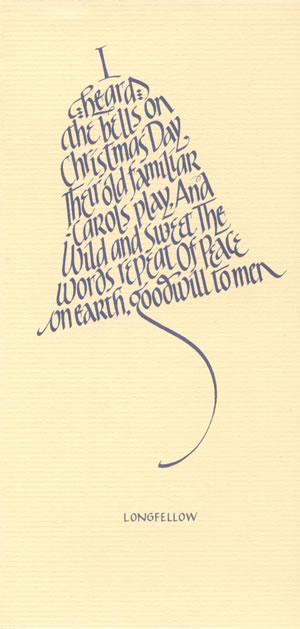 I
heard
the bells on
Christmas Day
Their old familiar
Carols play, And
Wild and sweet The
words repeat Of Peace
on earth, goodwill to men
LONGFELLOW